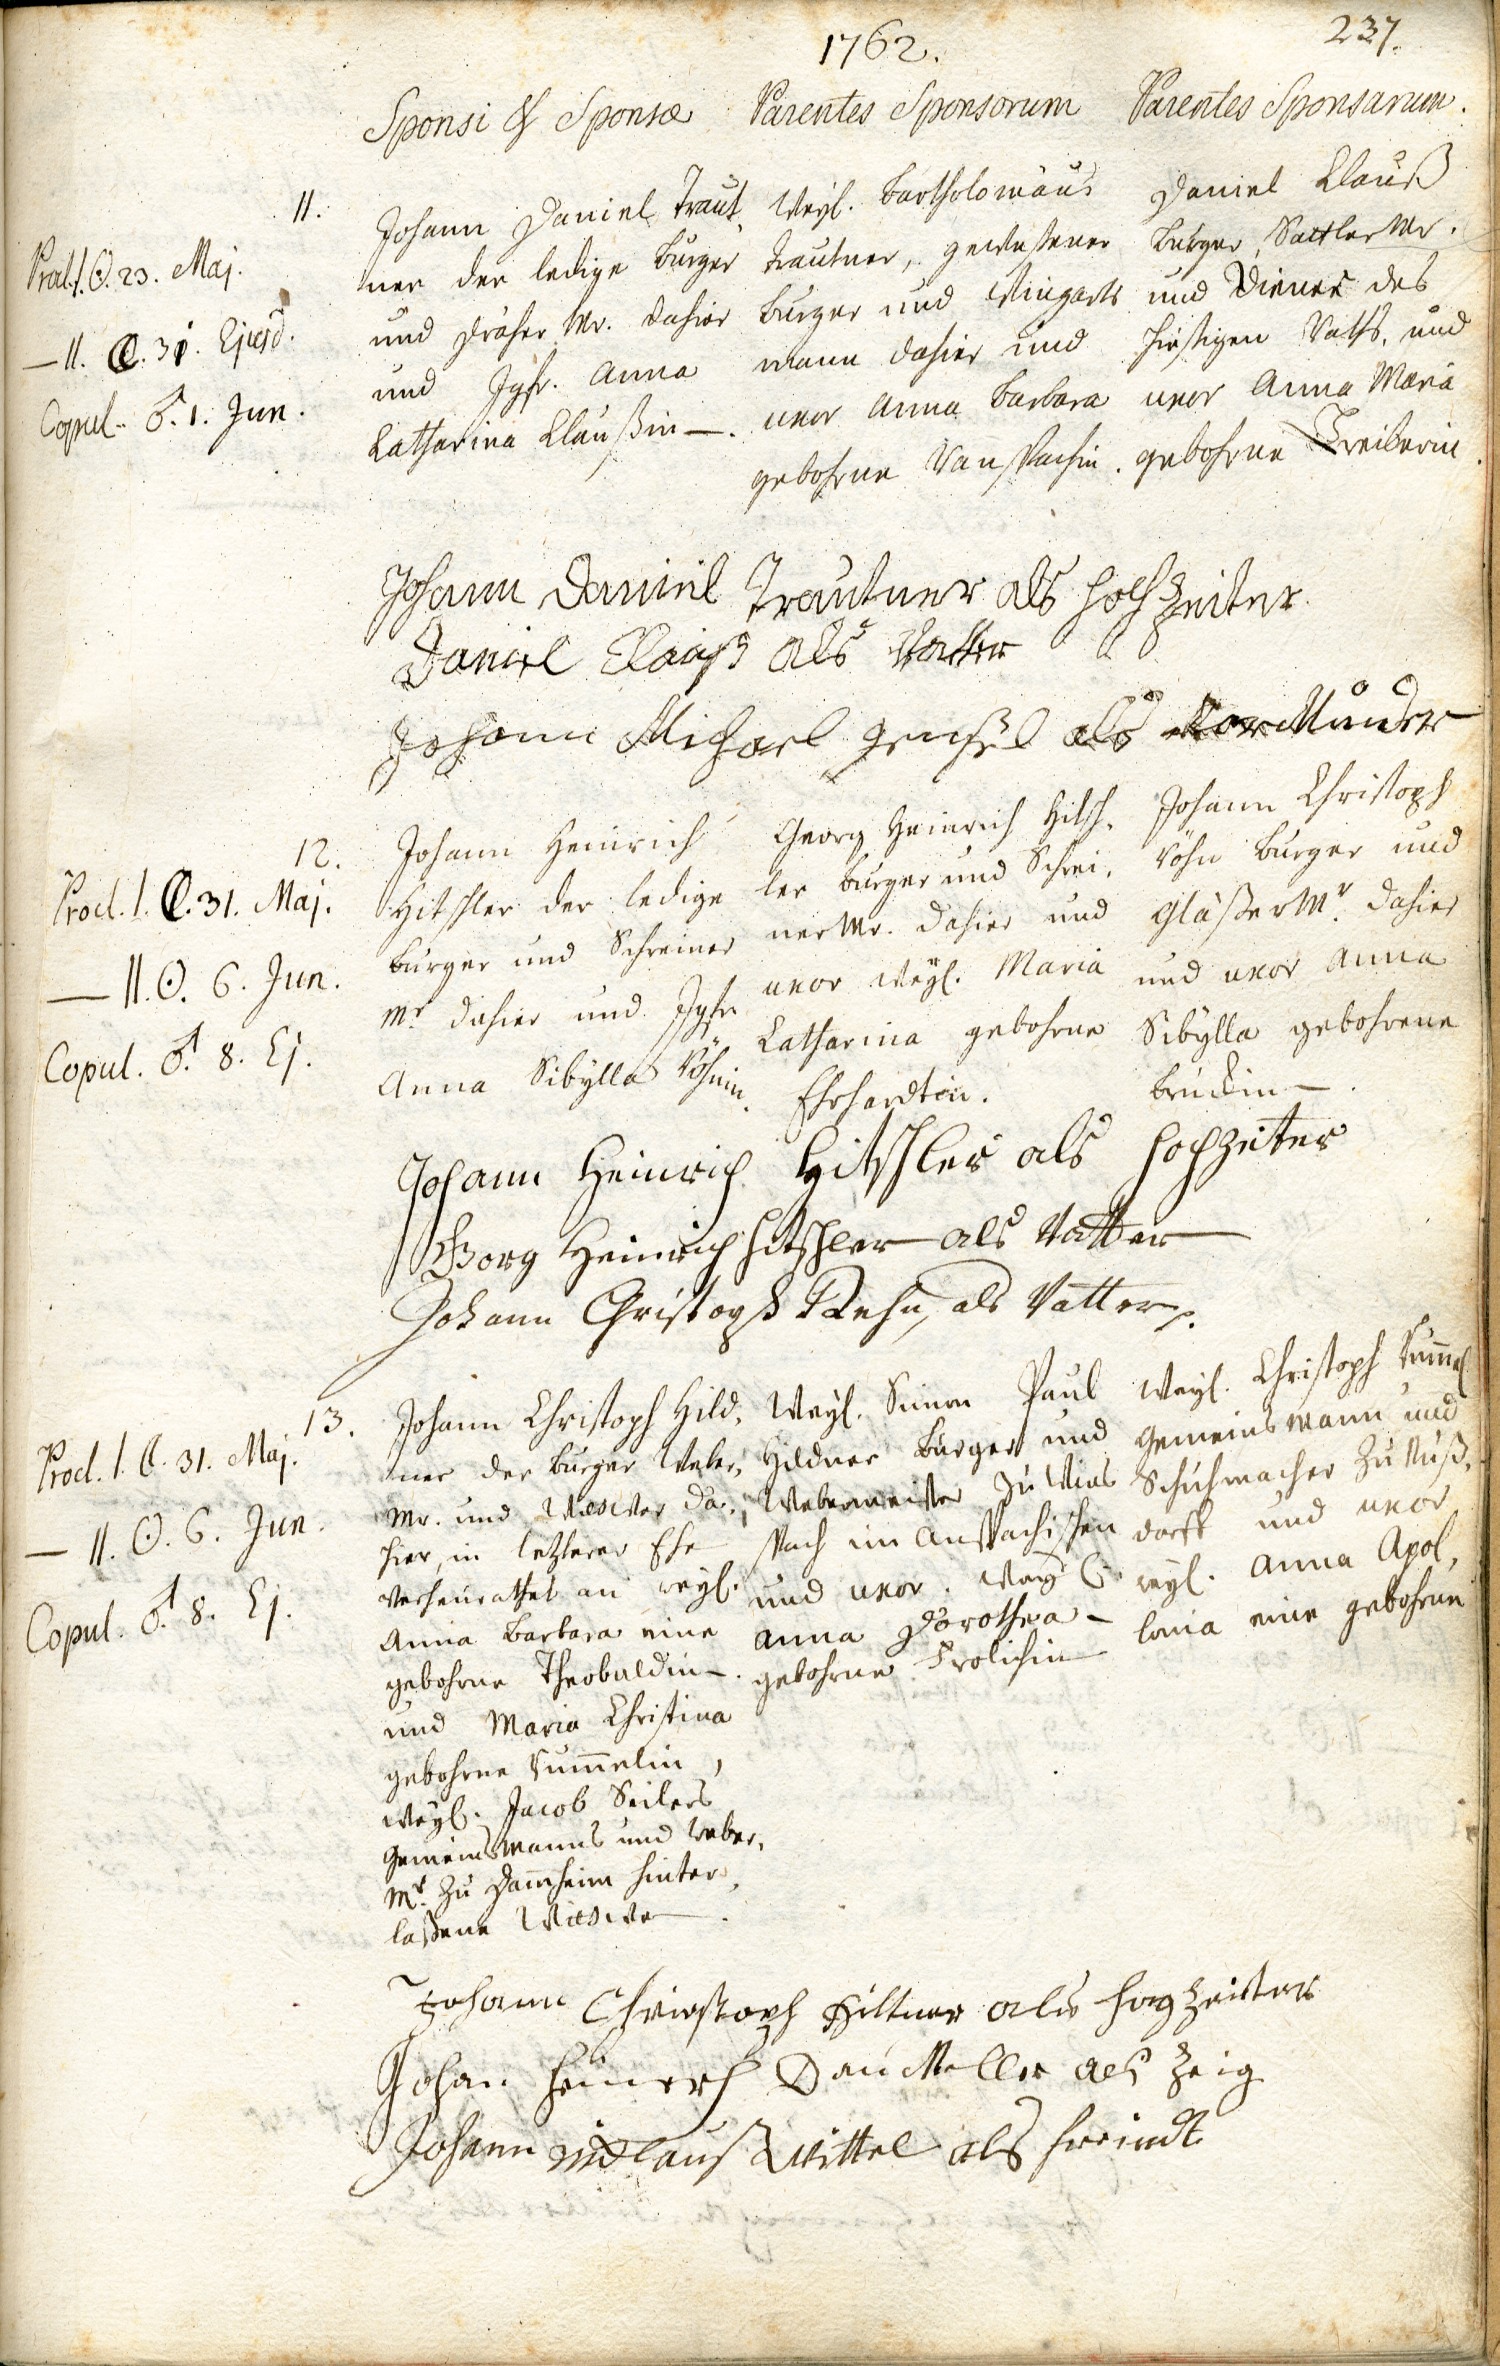 1762.
237.
Sponsi & Sponsæ
Parentes Sponsorum
Parentes Sponsarum.
11.
Procl. I. ☉. 23. Maj.
— II. ☾. 31. Ejusd.
Copul. ♂. 1. Jun.
Johann Daniel Traut
ner der ledige Burger
und Dräher Mr. dahier
und Jgfr. Anna
Catharina Claußin —.
Weyl. Bartholomäus
Trautner, gewesener
Burger und Wingarts
mann dahier und
uxor Anna Barbara
gebohrne
Daniel Clauß
Burger, Sattler Mr.
und Diener des
hiesigen Raths, und
uxor Anna Maria
gebohrne Treiberin.
Johann Daniel Trautner als Hochzeiter
Daniel Clauß als Vatter
Johann Michael als Vor Munder
12.
Procl. I. ☾. 31. Maj.
— II. ☉. 6. Jun.
Copul. ♂. 8. Ej.
Johann Heinrich
Hitschler der ledige
Burger und Schreiner
Mr. dahier und Jgfr.
Anna Sibylla Röhnin.
Georg Heinrich Hitsch,
ler Burger und Schrei,
ner Mr. dahier und
uxor weyl. Maria
Catharina gebohrne
Ehrhardtin.
Johann Christoph
Röhn Burger und
Glaßer Mr. dahier
und uxor Anna
Sibylla gebohrene
Bruckin —.
Johann Heinrich Hitschler als Hochzeiter
Georg Heinrich Hitschler als Vatter
Johann Christoph Rehn, als Vatter.
13.
Procl. I. ☾. 31. Maj.
— II. ☉. 6. Jun.
Copul. ♂. 8. Ej.
Johann Christoph Hild,
ner der Burger Weber,
Mr. und Wittwer da,
hier, in letzterer Ehe
verheurathet an weyl.
Anna Barbara eine
gebohrne Theobaldin —.
und Maria Christina
gebohrne Rummelin,
weyl. Jacob Seilers
Gemeinsmanns und Weber,
Mr. zu Dammheim hinter,
laßene Wittwe —.
Weyl. Simon Paul
Hildner Burger und
Webermeister zu
bach im Anspachischen
und uxor weyl.
Anna Dorothea —
gebohrne Frölichin
Weyl. Christoph Rummel
Gemeinsmann und
Schuhmacher zu Nuß,
dorff und uxor
weyl. Anna Apol,
lonia eine gebohrne
Johann Christoph Hiltner als Hogzeitter
Johan Heinerch als Zeig
Johann Niclauß Wittel als Freindt